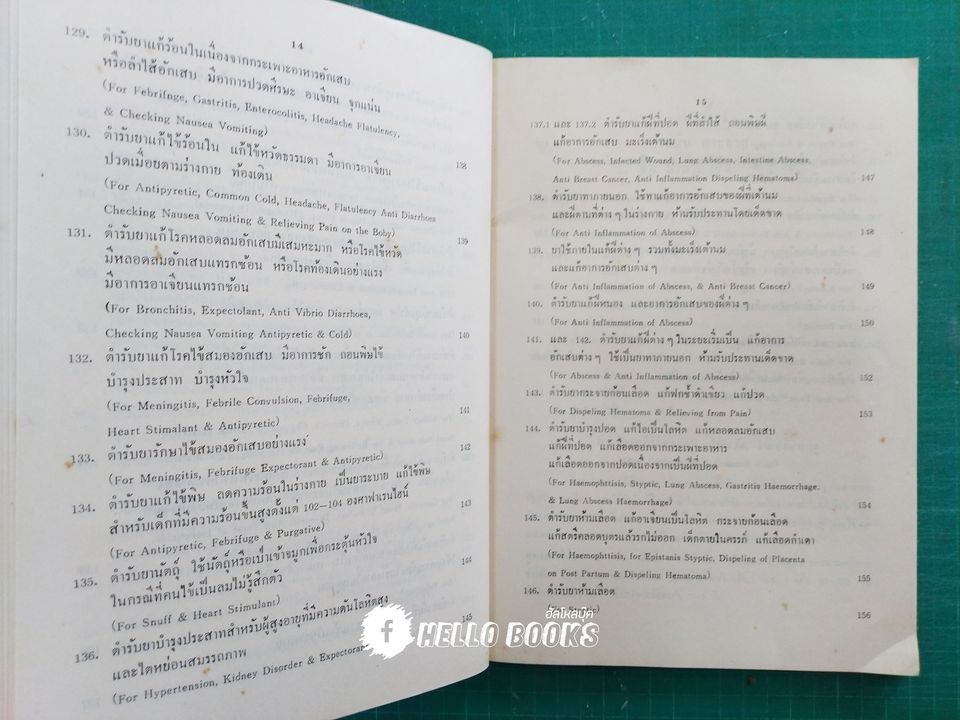 14
129. ตำรับยาแก้ร้อนในเนื่องจากกระเพาะอาหารอักเสบ
หรือลำไส้อักเสบ มีอาการปวดศีรษะ อาเจียน จุกแน่น
(For Febrifnge, Gastritis, Enterocolitis, Headache Flatulency,
& Checking Nausea Vomiting) 138
130. ตำรับยาแก้ไข้ร้อนใน แก้ไข้หวัดธรรมดา มีอาการอาเจียน
ปวดเมื่อยตามร่างกาย ท้องเดิน
(For Antipyretic, Common Cold, Headache, Flatulency Anti Diarrhoea
Checking Nausea Vomiting & Relieving Pain on the Boby) 139
131. ตำรับยาแก้โรคหลอดลมอักเสบมีเสมหะมาก หรือโรคไข้หวัด
มีหลอดลมอักเสบแทรกซ้อน หรือโรคท้องเดินอย่างแรง
มีอาการอาเจียนแทรกซ้อน
(For Bronchitis, Expectolant, Anti Vibrio Diarrhoea,
Checking Nausea Vomiting Antipyretic & Cold) 140
132. ตำรับยาแก้โรคไข้สมองอักเสบ มีอาการชัก ถอนพิษไข้
บำรุงประสาท บำรุงหัวใจ
(For Meningitis, Febrile Convulsion, Febrifuge,
Heart Stimalant & Antipyretic) 141
133. ตำรับยารักษาไข้สมองอักเสบอย่างแรง
(For Meningitis, Febrifuge Expectorant & Antipyretic) 142
134. ตำรับยาแก้ไข้พิษ ลดความร้อนในร่างกาย เป็นยาระบาย แก้ไข้พิษ
สำหรับเด็กที่มีความร้อนขึ้นสูงตั้งแต่ 102–104 องศาฟาเรนไฮน์
(For Antipyretic, Febrifuge & Purgative) 143
135. ตำรับยานัตถุ์ ใช้นัตถุ์หรือเป่าเข้าจมูกเพื่อกระตุ้นหัวใจ
ในกรณีที่คนไข้เป็นลมไม่รู้สึกตัว
(For Snuff & Heart Stimulant) 144
136. ตำรับยาบำรุงประสาทสำหรับผู้สูงอายุที่มีความดันโลหิตสูง
และไตหย่อนสมรรถภาพ 145
(For Hypertension, Kidney Disorder & Expectoran
15
137.1 และ 137.2 ตำรับยาแก้ฝีที่ปอด ฝีที่ลำไส้ ถอนพิษฝี
แก้อาการอักเสบ มะเร็งเต้านม
(For Abscess, Infected Wound, Lung Abscess, Intestine Abscess,
Anti Breast Cancer, Anti Inflammation Dispeling Hematoma) 147
138. ตำรับยาทาภายนอก ใช้ทาแก้อาการอักเสบของฝีที่เต้านม
และฝีตามที่ต่าง ๆ ในร่างกาย ห้ามรับประทานโดยเด็ดขาด
(For Anti Inflammation of Abscess) 148
139. ยาใช้ภายในแก้ฝีต่าง ๆ รวมทั้งมะเร็งเต้านม
และแก้อาการอักเสบต่าง ๆ
(For Anti Inflammation of Abscess, & Anti Breast Cancer) 149
140. ตำรับยาแก้ฝีหนอง และอาการอักเสบของฝีต่าง ๆ
(For Anti Inflammation of Abscess) 150
141. และ 142. ตำรับยาแก้ฝีต่าง ๆ ในระยะเริ่มเป็น แก้อาการ
อักเสบต่าง ๆ ใช้เป็นยาทาภายนอก ห้ามรับประทานเด็ดขาด
(For Abscess & Anti Inflammation of Abscess) 152
143. ตำรับยากระจายก้อนเลือด แก้ฟกช้ำดำเขียว แก้ปวด
(For Dispeling Hematoma & Relieving from Pain) 153
144. ตำรับยาบำรุงปอด แก้ไอเป็นโลหิต แก้หลอดลมอักเสบ
แก้ฝีที่ปอด แก้เลือดออกจากกระเพาะอาหาร
แก้เลือดออกจากปอดเนื่องจากเป็นฝีที่ปอด
(For Haemophttisis, Styptic, Lung Abscess, Gastritis Haemorrhage,
& Lung Abscess Haemorrhage) 154
145. ตำรับยาห้ามเลือด แก้อาเจียนเป็นโลหิต กระจายก้อนเลือด
แก้สตรีคลอดบุตรแล้วรกไม่ออก เด็กตายในครรภ์ แก้เลือดกำเดา
(For Haemophttisis, for Epistanis Styptic, Dispeling of Placenta
on Post Partum & Dispeling Hematoma) 155
146. ตำรับยาห้ามเลือด
156
ฮัลโหลบุ๊ค
f HELLO BOOKS